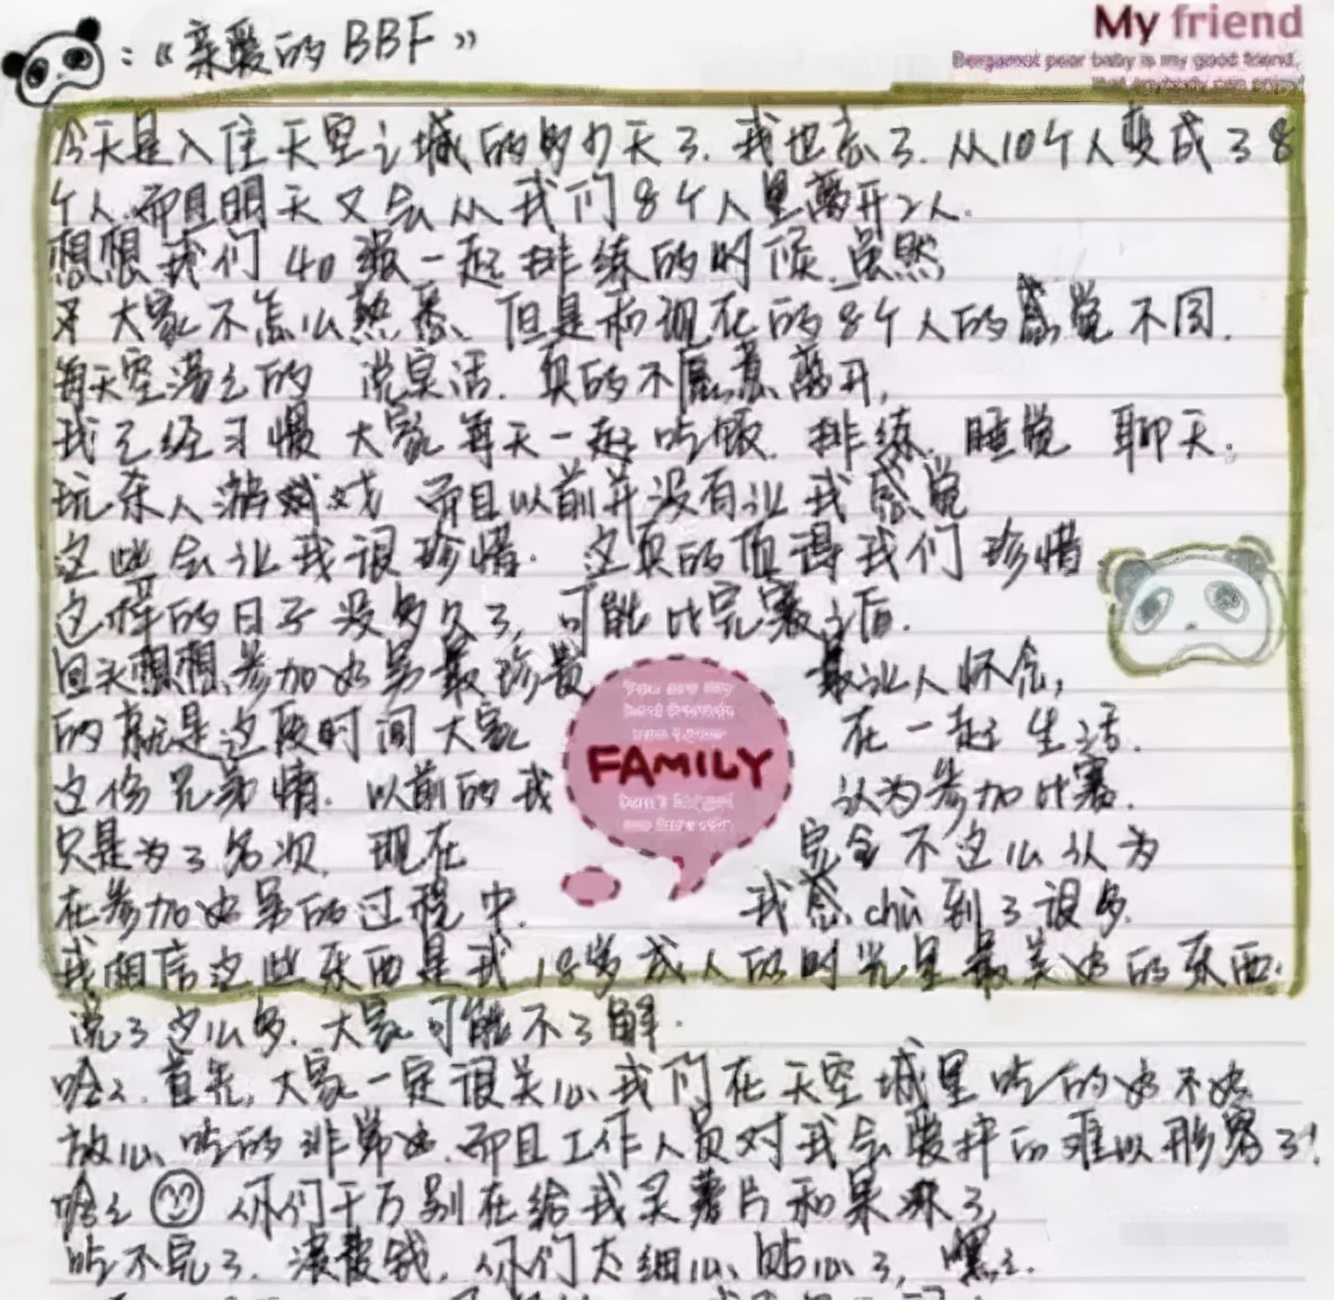 My friend
Bergamot pear baby is my good friend,
:《亲爱的BBF》
今天是入住天空之城的多少天了.我也忘了.从10个人变成了8
个人.而且明天又会从我们8个人里离开2人.
想想我们40强一起排练的时候.虽然
大家不怎么熟悉、但是和现在的8个人的感觉不同.
每天空荡之的 说实话.真的不愿意离开,
我已经习惯大家每天一起吃饭.排练.睡觉 聊天.
玩杀人游戏 而且以前并没有让我感觉
这些会让我很珍惜.这真的值得我们珍惜
这样的日子没多久了,可能比完赛之后.
回头想想.参加好男最珍贵 最让人怀念,
的就是这段时间大家 在一起生活.
这份兄弟情.以前的我 认为参加比赛.
只是为了名次.现在 完全不这么认为
在参加好男的过程中. 我感chù到了很多.
FAMILY
我相信这些东西是我18岁成人的时光里最美好的东西.
说了这么多.大家可能不了解.
哈之.首先,大家一定很关心、我们在天空城里吃的好不好
放心、吃的非常好.而且工作人员对我会照样的难以形容了!
哈之 你们千万别在给我买薯片和果冻了,
吃不完了.浪费钱,你们太细心、贴心了,嘿之.